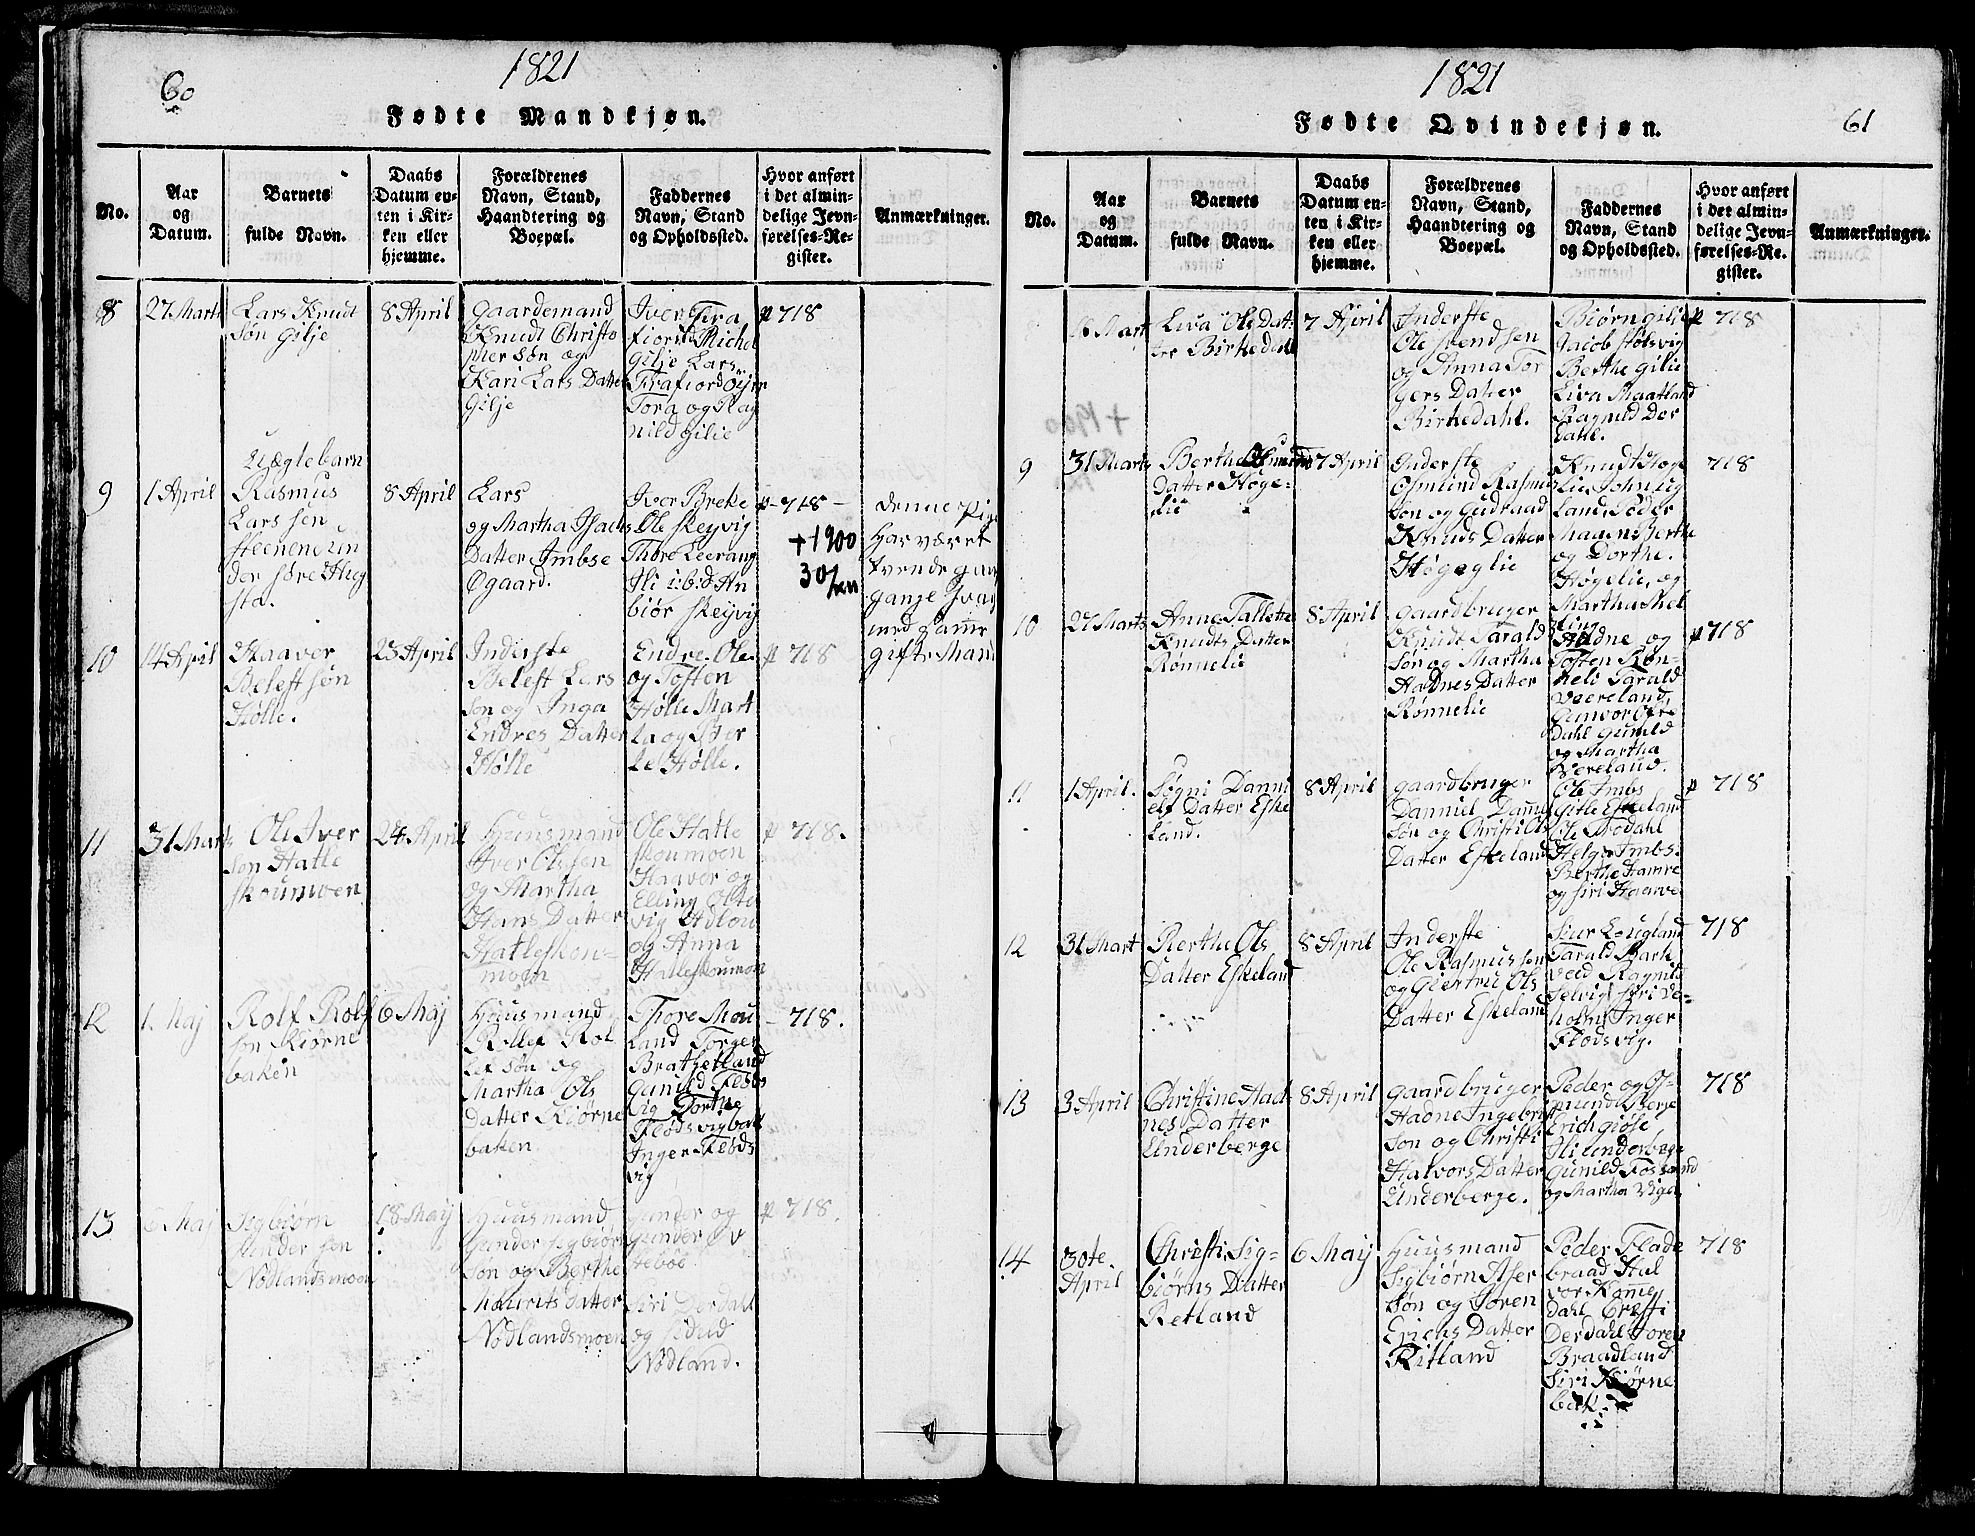 60
1821
Fødte Mandkjøn.
No.
Aar
og
Datum.
Barnets
fulde Navn.
Daabs
Datum en-
ten i Kir-
ken eller
hjemme.
Forældrenes
Navn, Stand,
Haandtering og
Boepæl.
Faddernes
Navn, Stand
og Opholdssted.
Hvor anført
i det almin-
delige Jevn-
førelses-Re-
gister.
Anmærkninger.
8
27 Marts
Lars Knudt
søn Gilje
8 April
Gaardemand
Knudt Christo
pher søn og
Kari Lars Datter
Gilje
Iver Fra
fiord Michel
Gilje Lars
Frafiord
Tora og Rag
nild Gilie
p 718
9
1 April
Uægtebarn
Rasmus
Lars sen
Steenene un
der søre
sta.
8 April
Lars
og Martha Isachs
Datter Imbse
Øgaard.
Iver Breke
Ole Skeyvig
Thore Leerang
An
biør Skeyvig
p - 718 -
+ 1900
Denne Pige
Har været
tvende gan
gange
med samme
gifte Mand
10
14 April
Haaver
Belest søn
Hølle.
23 April
Inderste
Belest Lars
søn og Inga
Endres Datter
Hølle
Endre Ole
og Tosten
Hølle Mart
ta og Ber
te Hølle.
p 718
11
31 Marts
Ole Iver
søn Hatle
skoumoen
24 April
Huusmand
Iver Olesen
og Martha
Hans Datter
Hatleskou-
moen
Ole Hatle
skoumoen
Haaver og
Elling Olte
vig
og Anna
Hatleskoumoen
p 718.
12
1. Maj
Rolf Rolf
søn Kiørne
baken
6 Maj
Huusmand
Rollef Rol
lef søn og
Martha Ols
Datter Kiørne
baken
Thore Mou
land Torger
Bratsetland
Gunild Fløds
vig Dorthe
Flødsvigbak
Inger Fløds
vig
- 718.
13
6 Maj
Sigbiørn
Gunder sen
Nødlandsmoen
18 Maij
Huusmand
Gunder Sigbiørn
søn og Berthe
Mourits datter
Nødlandsmoen
Gunder og
Gunder
stebøe
Siri Derdahl
og Sidud
Nødland.
p 718.
1821
61
Fødte Qvindekjøn.
No.
Aar
og
Datum.
Barnets
fulde Navn.
Daabs
Datum en-
ten i Kir-
ken eller
hjemme.
Forældrenes
Navn, Stand,
Haandtering og
Boepæl.
Faddernes
Navn, Stand
og Opholdssted.
Hvor anført
i det almin-
delige Jevn-
førelses-Re-
gister.
Anmærkninger.
Mart
Liva Ols Dat
ter Birkedahl
7 April
Inderste
Ole Svendsen
og Anna Tor
gers Datter
Birkedahl.
Biørn Gilje
Jacob Stølsvig
Berthe Gilie
Liva Maatland
Ragnild Der
dahl.
p 718
9
31 Marts
Bertha Osmund
Datter Høge-
lie
7 April
Inderste
Osmund Rasmus
søn og Gudraad
Knuds Datter
Høgeglie
Knudt Høge
lie John
land Peder
Maaen Berthe
og Dorthe
Høgelie, og
718
10
27 Marts
Anne Tallette
Knudts Datter
Rønnelie
8 April
Gaardbruger
Knudt Tarald
søn og Martha
Hadnes Datter
Rønnelie
Martha Mel
ting
Hadne og
Tosten Røn-
neli Tarald
Væreland
Gunvor Øfre
Dahl Gunild
og Martha
Væreland.
p 718
11
1 April.
Søgni Danni
els Datter Eske
land.
8 April
Gaardbruger
Danniel Danniel
søn og Christi Ols
Datter Eskeland
Ole Imbs
Gitle Eskeland
Ole Frødahl
Helge Imbs.
Berthe Hamre
og Siri Haave
p 718
12
31 Mart
Berthe Ols
Datter Eskeland
8 April
Inderste
Ole Rasmussen
og Giertru Ols
Datter Eskeland
Siur Lougland
Tarald Bark
ved Ragnild
Selvig Siri De-
holm Inger
Flødsvig.
718
13
3 April
Christine Had
nes Datter
Underberge
8 April
Gaardbruger
Hadne Ingebrigt
søn og Christi
Halvors Datter
Underberge.
Peder og Os-
mund Berge
Erich Giøse
Underberge
Gunild Fossand
og Martha Viga
718
14
30te.
April
Christi Sig-
biørns Datter
Retland
6 Maij
Huusmand
Sigbiørn Aser
søn og Soren
Erichs Datter
Ritland
Peder Flade
braad Hal
vor Komme
dahl Cresti
Derdahl Soren
Braadland
Siri Kiørne
bak.
718